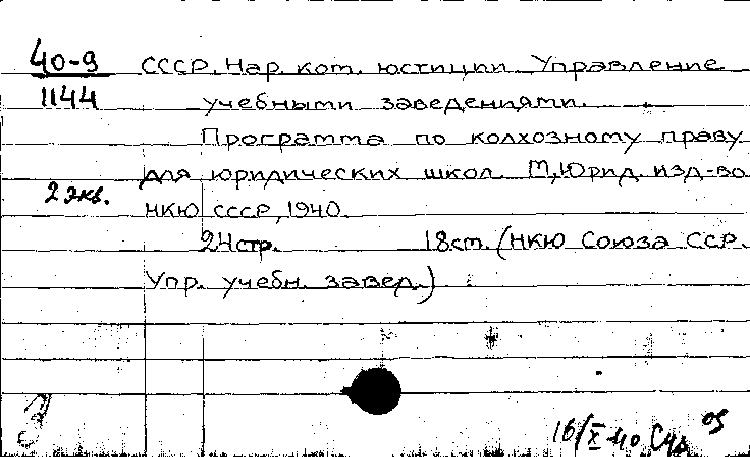 40-9
1144
СССР. Нар. ком. юстиции. Управление
учебными заведениями.
Программа по колхозному праву
для юридических школ. М, Юрид. изд-во
2 экз.
НКЮ СССР, 1940.
24 стр. 18 cm. (НКЮ Союза ССР.
Упр. учебн. завед.)
16/X 40